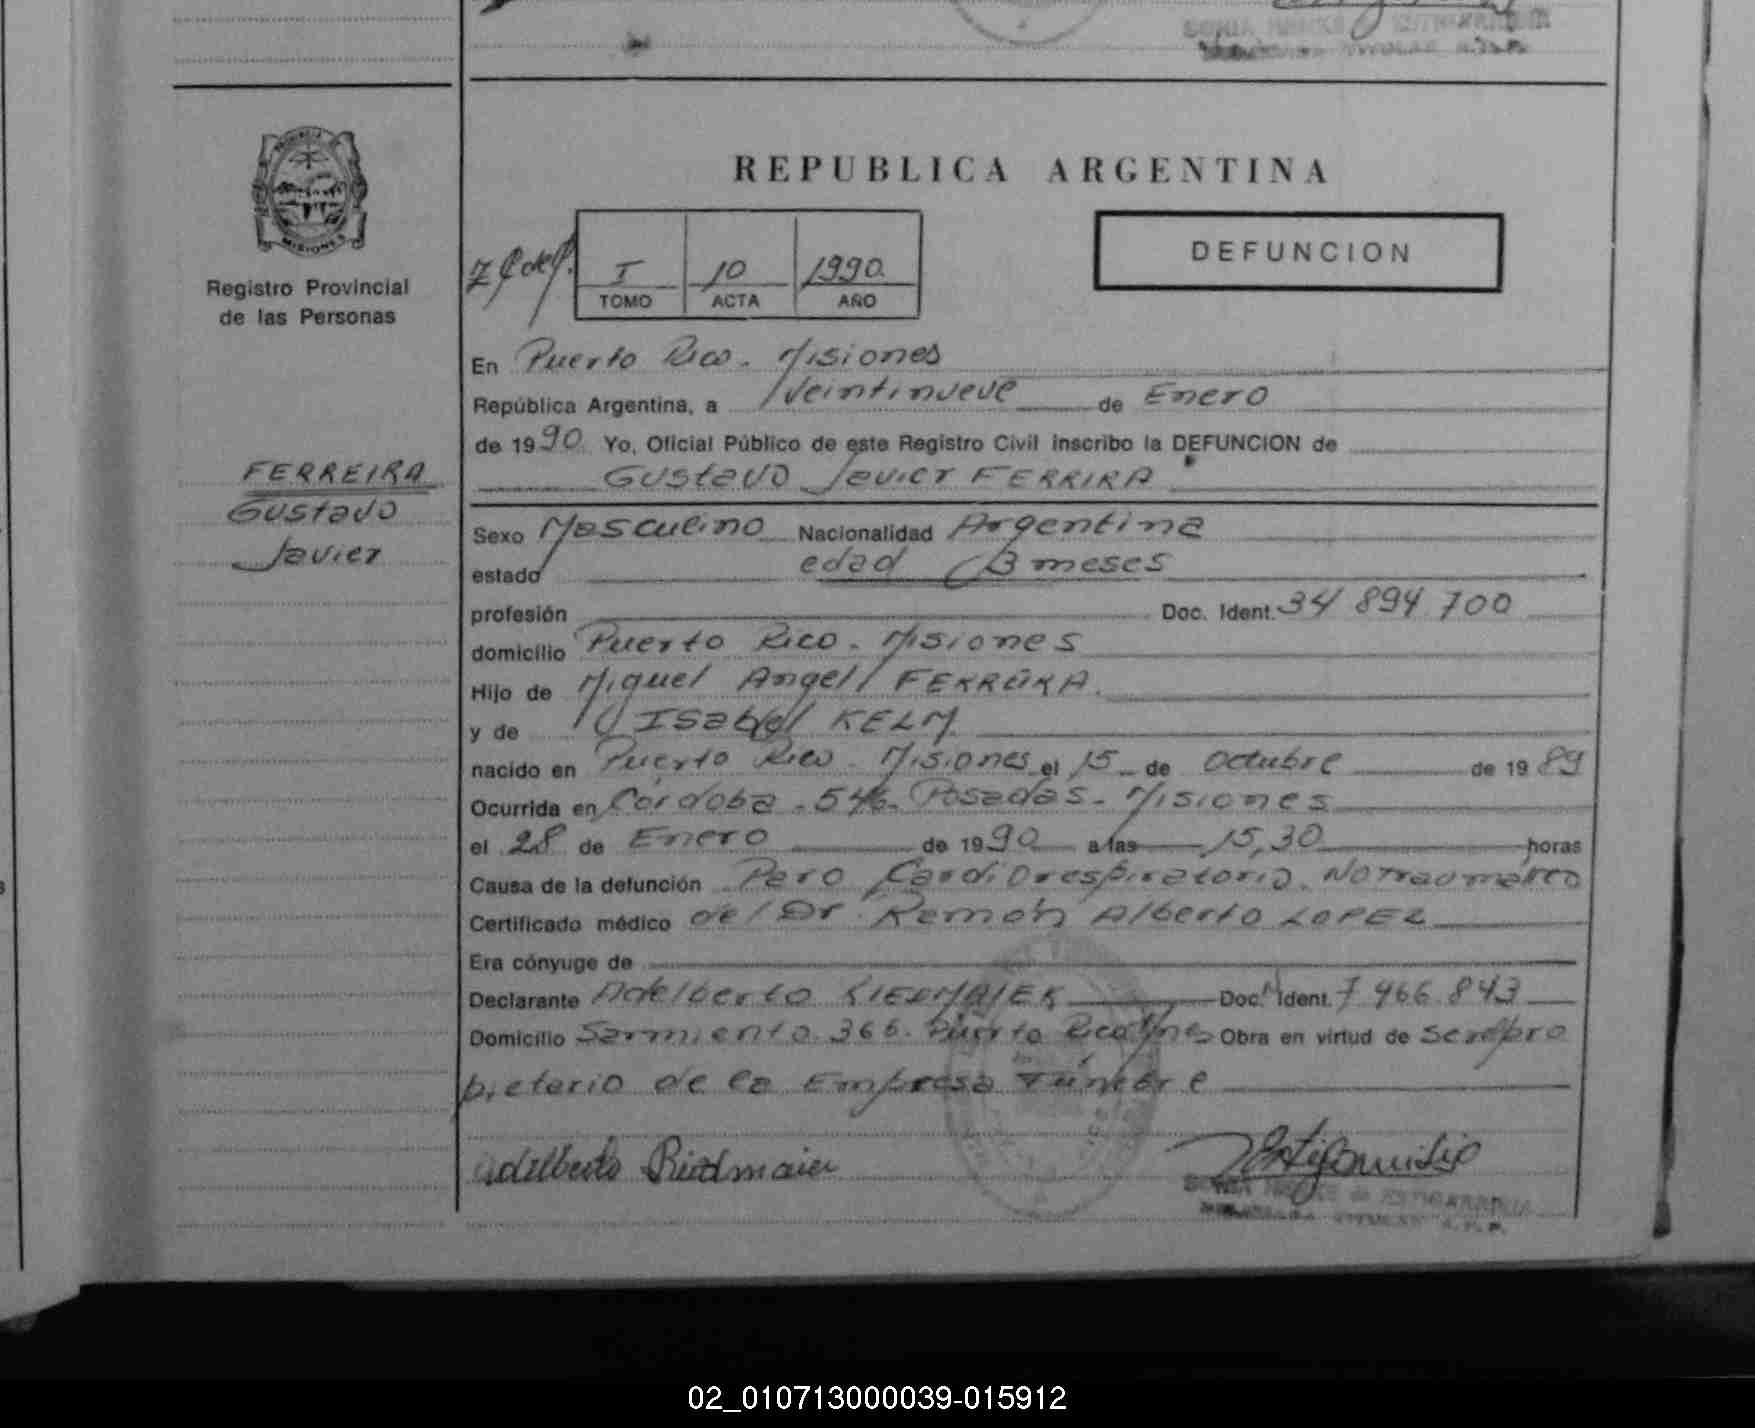 REPUBLICA ARGENTINA
DEFUNCION
PROVINCIA
MISIONES
Registro Provincial
de las Personas
I 10 1990
TOMO ACTA AÑO
En Puerto Rico - Misiones
República Argentina, a Veintinueve de Enero
de 1990 Yo, Oficial Público de este Registro Civil inscribo la DEFUNCION de
Gustavo Javier FERRIRA
FERREIRA
Gustavo
Javier
Sexo Masculino Nacionalidad Argentina
estado edad 3 meses
profesión Doc. Ident. 34 894 700
domicilio Puerto Rico - Misiones
Hijo de Miguel Angel FERREIRA
y de Isabel KELM
nacido en Puerto Rico - Misiones el 15 de Octubre de 1989
Ocurrida en Córdoba - 546 - Posadas - Misiones
el 28 de Enero de 1990 a las 15,30 horas
Causa de la defunción Paro Cardiorespiratorio. No Traumatico
Certificado médico del Dr. Ramón Alberto LOPEZ
Era cónyuge de
Declarante Adelberto RIEDMAIER Doc. Ident. 7 466 843
Domicilio Sarmiento 366. Puerto Rico Mnes Obra en virtud de ser pro
pietario de la Empresa Fúnebre
Adelberto Riedmaier
02_010713000039-015912